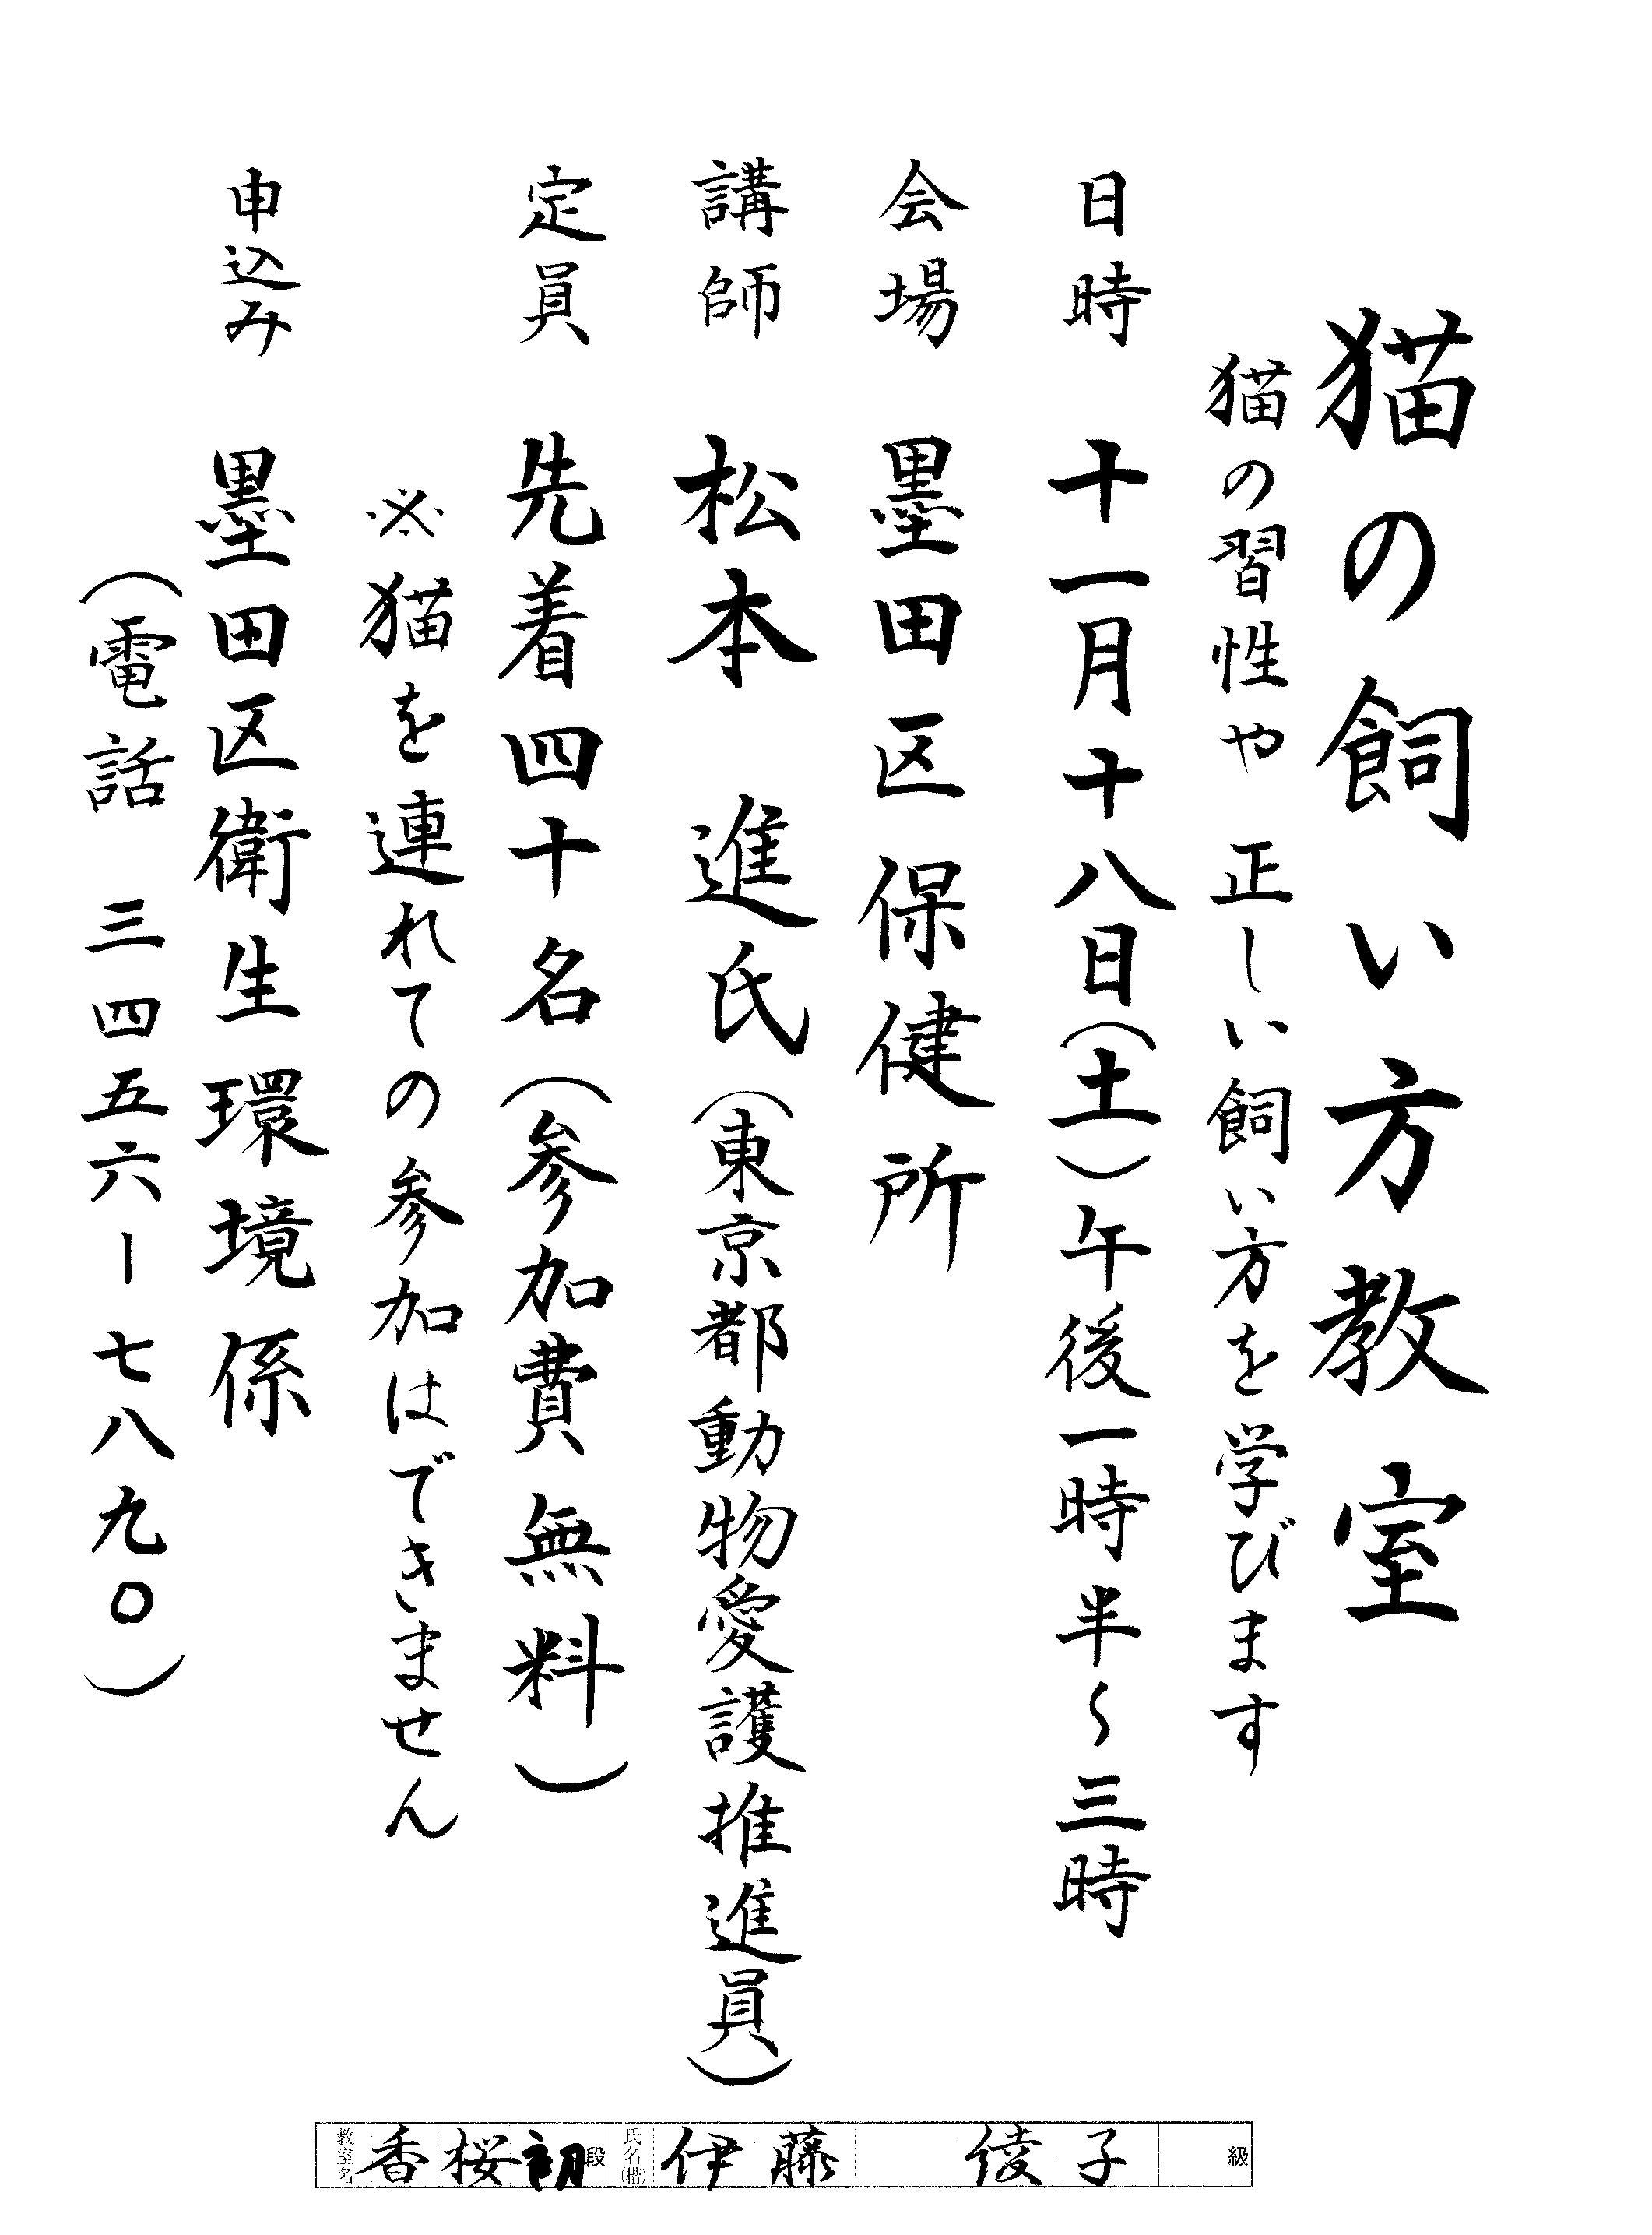 猫の飼い方教室
猫の習性や 正しい飼い方を学びます
日時 十一月十八日(土)午後一時半〜三時
会場 墨田区保健所
講師 松本 進氏(東京都動物愛護推進員)
定員 先着四十名(参加費無料)
※猫を連れての参加はできません
申込み 墨田区衛生環境係
(電話 三四五六ー七八九〇)
教室名 香桜 初段 氏名(楷) 伊藤 綾子 級